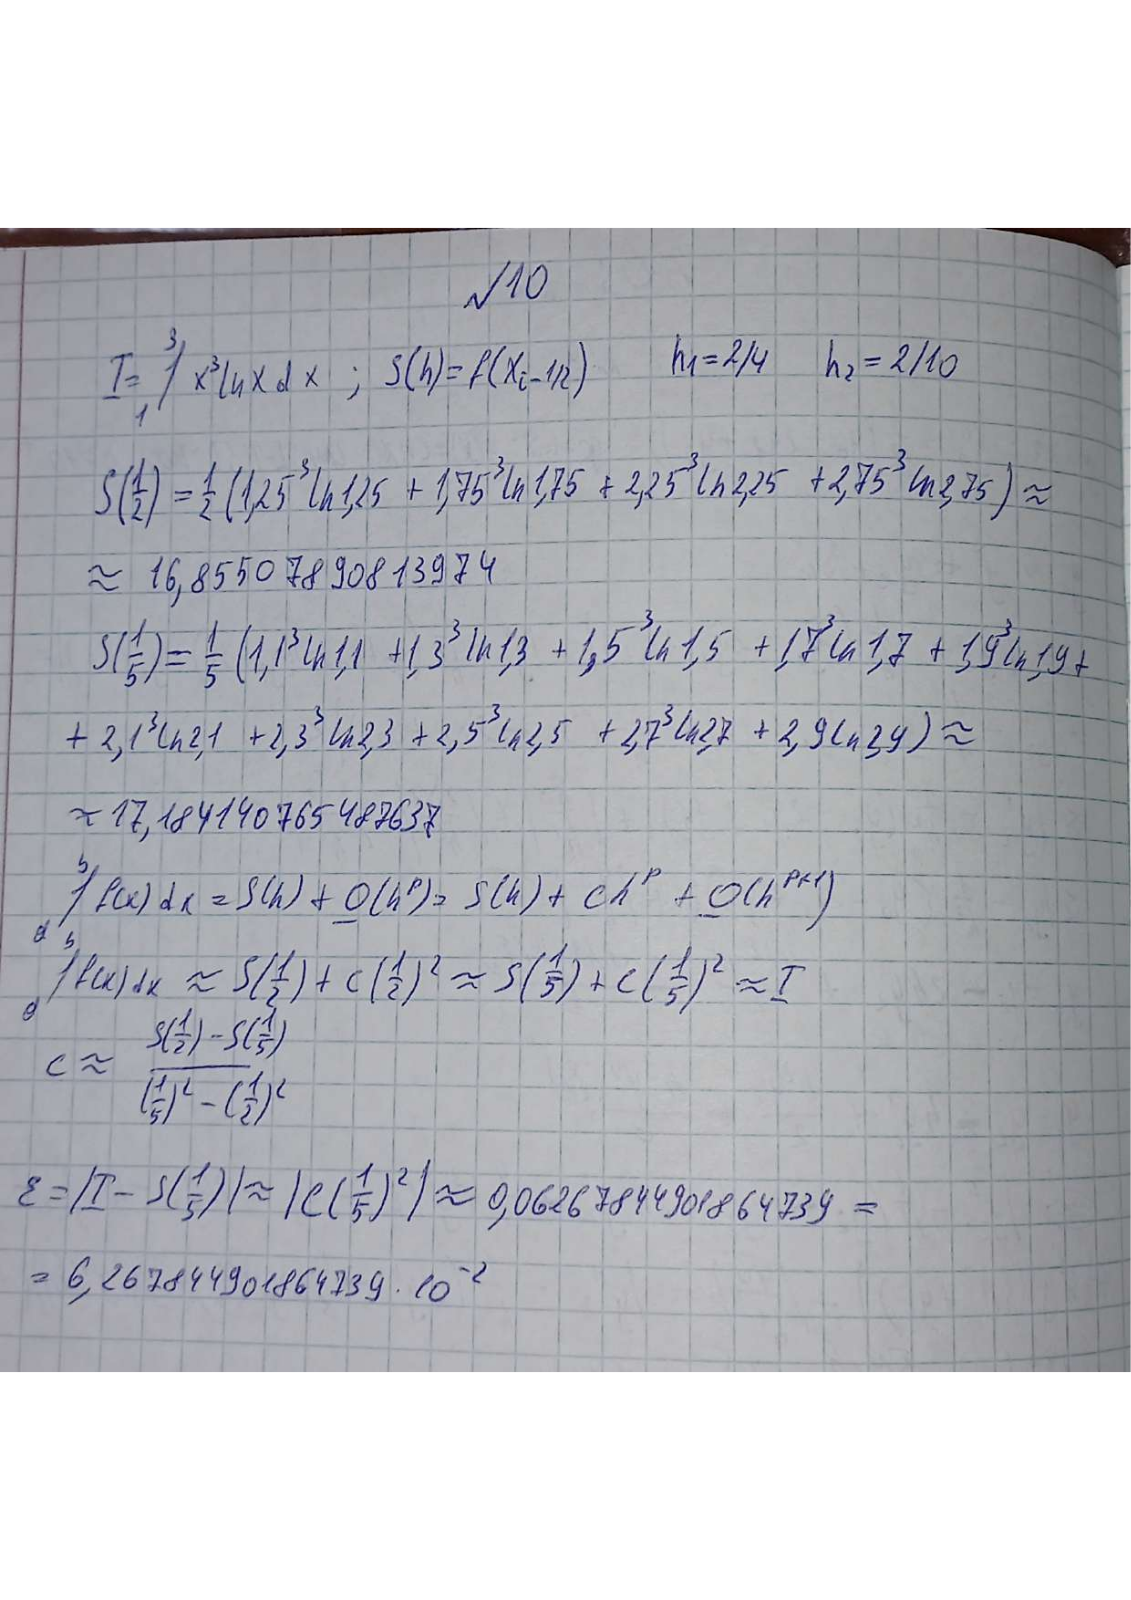 №10
I = ₁∫³ x³ ln x dx ; S(h) = f(x_{i-1/2}) h₁ = 2/4 h₂ = 2/10
S(1/2) = 1/2 (1,25³ ln 1,25 + 1,75³ ln 1,75 + 2,25³ ln 2,25 + 2,75³ ln 2,75) ≈
≈ 16,85507890813974
S(1/5) = 1/5 (1,1³ ln 1,1 + 1,3³ ln 1,3 + 1,5³ ln 1,5 + 1,7³ ln 1,7 + 1,9³ ln 1,9 +
+ 2,1³ ln 2,1 + 2,3³ ln 2,3 + 2,5³ ln 2,5 + 2,7³ ln 2,7 + 2,9 ln 2,9) ≈
≈ 17,184140765487637
ₐ∫ᵇ f(x) dx = S(h) + O(hᵖ) = S(h) + Chᵖ + O(hᵖ⁺¹)
ₐ∫ᵇ f(x) dx ≈ S(1/2) + C(1/2)² ≈ S(1/5) + C(1/5)² ≈ I
C ≈ (S(1/2) - S(1/5)) / ((1/5)² - (1/2)²)
ε = |I - S(1/5)| ≈ |C(1/5)²| ≈ 0,06267844901864739 =
= 6,267844901864739 · 10⁻²